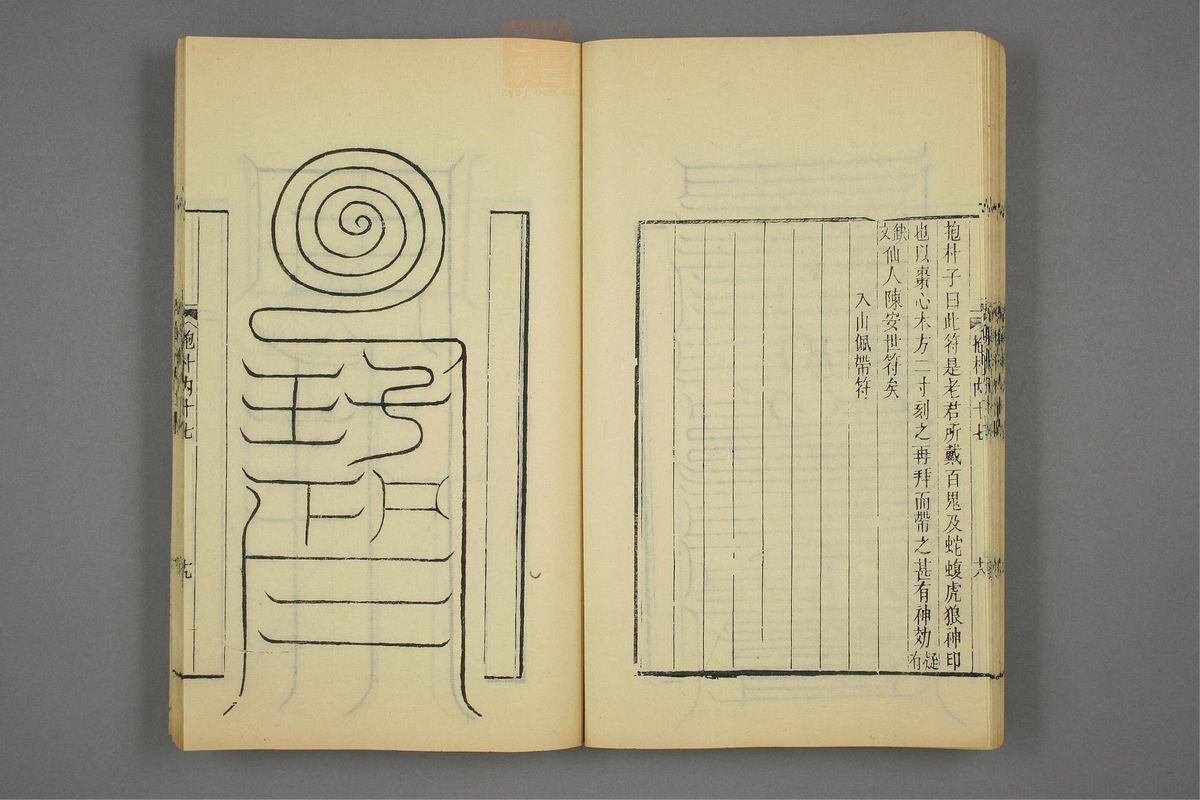 抱朴子曰此符是老君所戴百鬼及蛇蝮虎狼神印
也以棗心木方二寸刻之再拜而帶之甚有神効疑有
缺文仙人陳安世符矣
入山佩帶符
抱朴内十七
十八
抱朴内十七
十九